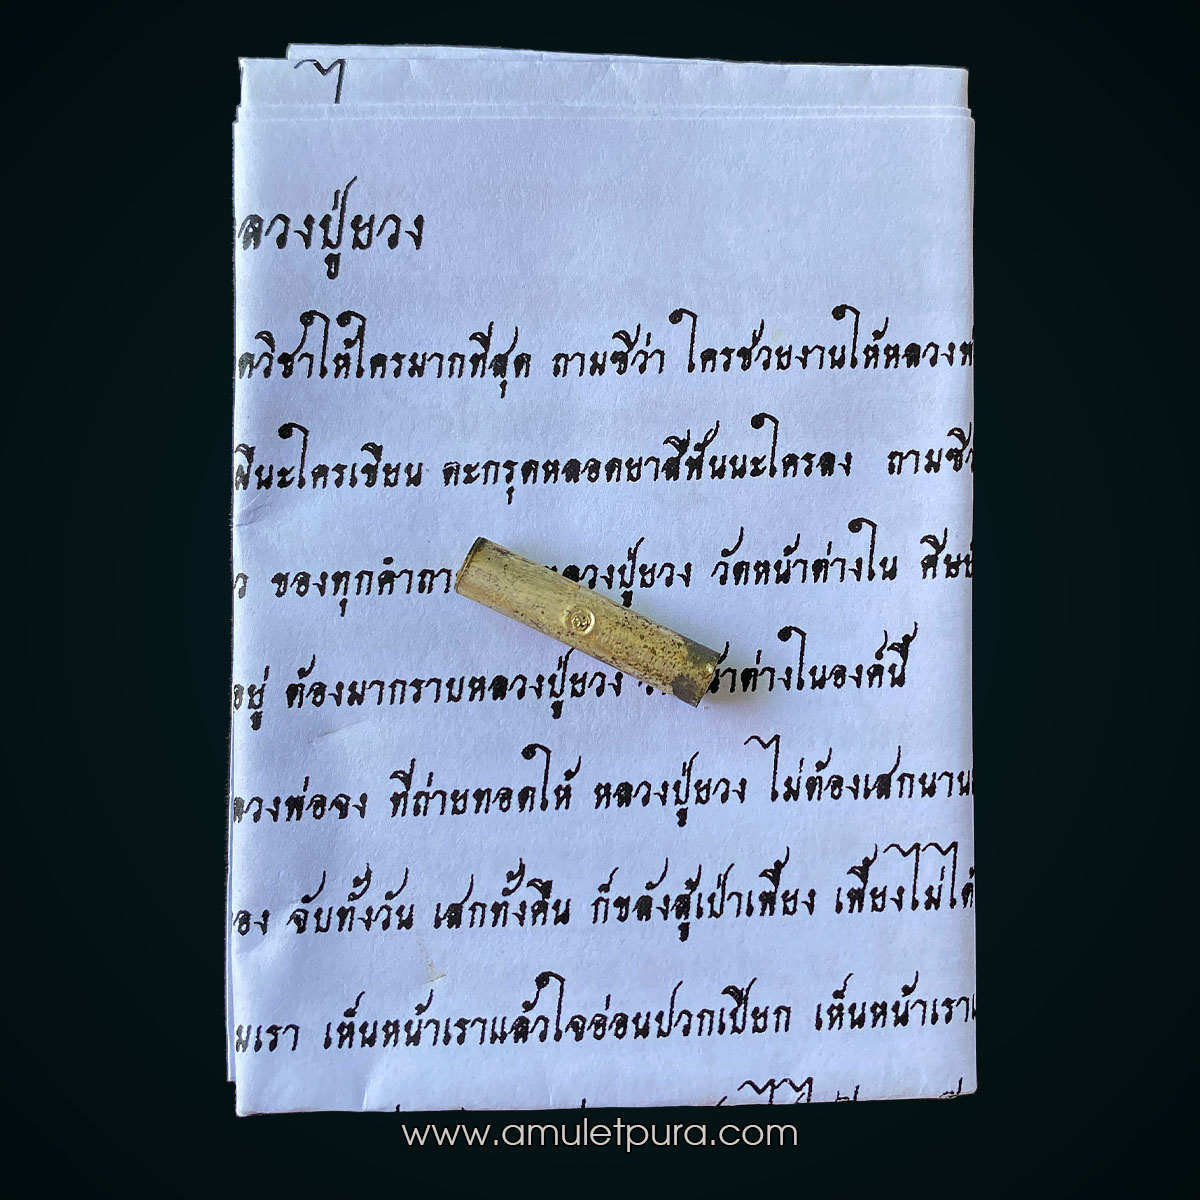 ไ
ลวงปู่ยวง
ดวิชาให้ใครมากที่สุด ถามซีว่า ใครช่วยงานให้หลวงพ
มีนะใครเขียน ตะกรุดหลอดยาสีฟันนะใครลง ถามซีว
ว ของทุกคำถา ลวงปู่ยวง วัดหน้าต่างใน ศีษย
อยู่ ต้องมากราบหลวงปู่ยวง ว น้าต่างในองค์นี้
ลวงพ่อจง ที่ถ่ายทอดให้ หลวงปู่ยวง ไม่ต้องเสกนาน
อง จับทั้งวัน เสกทั้งคืน ก็ขลังสู้เป่าเพี้ยง เพี้ยงไม่ได้
มเรา เห็นหน้าเราแล้วใจอ่อนปวกเปียก เห็นหน้าเราแ
www.amuletpura.com